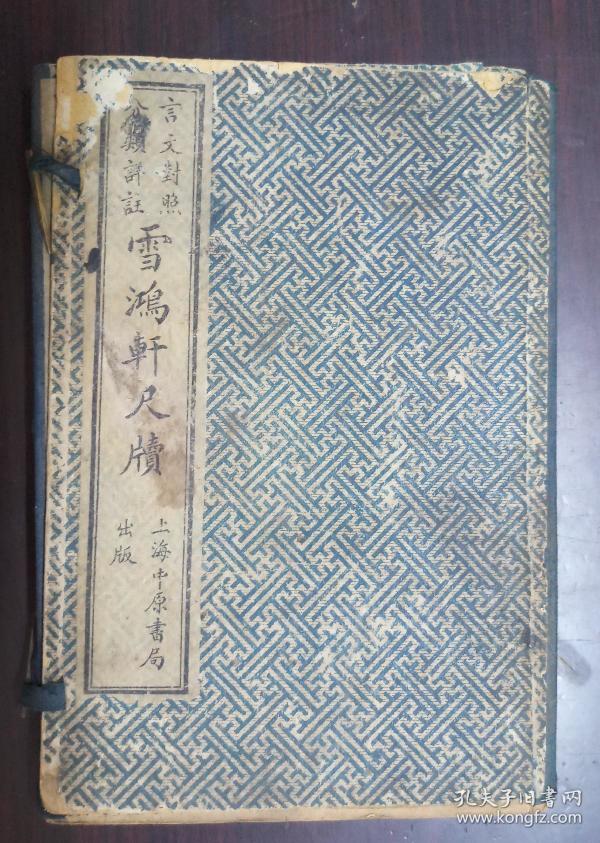 言文對照
分類詳註
雪鴻軒尺牘
上海中原書局
出版
孔夫子旧書网
www.kongfz.com